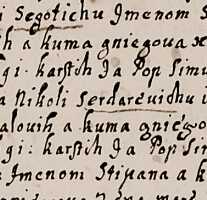 i Segotichu Jmenom S
h a kuma gniegoua x
gi: karstih Ja Pop Simu
a Nikoli Serdareuichu i
alouih a kuma gniego
gi: karstih Ja Pop Sim
Jmenom Stipana a k